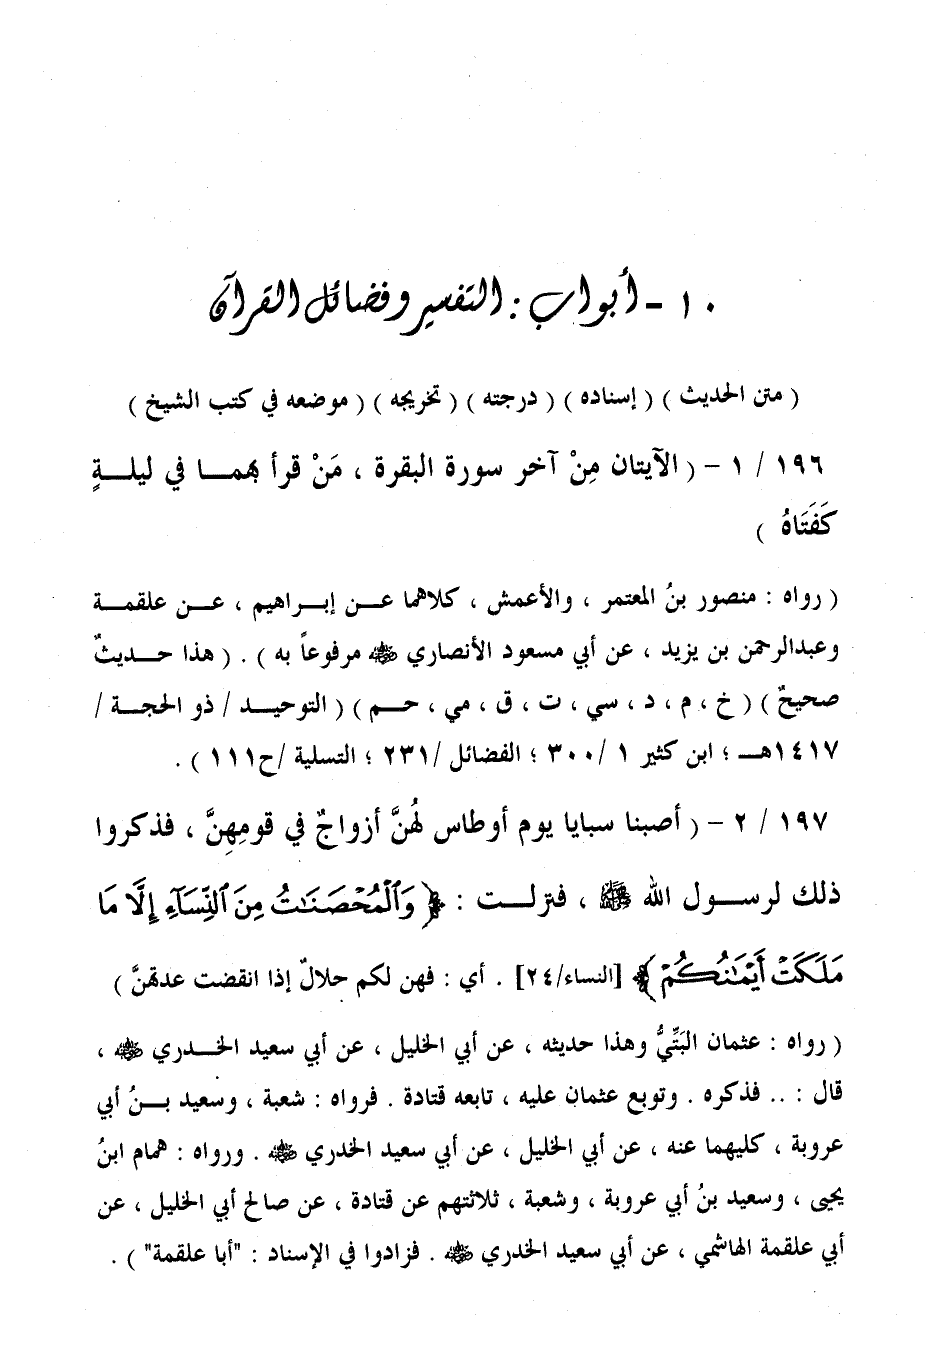 ١٠ - أبواب : التفسير وفضائل القرآن
( متن الحديث ) ( إسناده ) ( درجته ) ( تخريجه ) ( موضعه في كتب الشيخ )
١٩٦ / ١ - ( الآيتان مِنْ آخر سورة البقرة ، مَنْ قرأ بهمـا في ليلـةٍ
كَفَتَاهُ )
( رواه : منصور بنُ المعتمر ، والأعمش ، كلاهما عـن إبـراهيم ، عـن علقمـة
وعبدالرحمن بن يزيد ، عن أبي مسعود الأنصاري ﵁ مرفوعاً به ) . ( هذا حـديثٌ
صحيحٌ ) ( خ ، م ، د ، سي ، ت ، ق ، مي ، حـم ) ( التوحيـد / ذو الحجـة /
١٤١٧هـ ؛ ابن كثير ١ /٣٠٠ ؛ الفضائل /٢٣١ ؛ التسلية /ح١١١ ) .
١٩٧ / ٢ - ( أصبنا سبايا يوم أوطاس لهُنَّ أزواجٌ في قومِهِنَّ ، فذكروا
ذلك لرسـول الله ﷺ ، فنزلـت : ﴿ وَٱلْمُحْصَنَٰتُ مِنَ ٱلنِّسَآءِ إِلَّا مَا
مَلَكَتْ أَيْمَٰنُكُمْ ﴾ [النساء/٢٤] . أي : فهن لكم حلالٌ إذا انقضت عدتهنَّ )
( رواه : عثمان البَتِّيُّ وهذا حديثه ، عن أبي الخليل ، عن أبي سعيد الخـدري ﵁ ،
قال : .. فذكره . وتوبع عثمان عليه ، تابعه قتادة . فرواه : شعبة ، وسعيد بـنُ أبي
عروبة ، كليهما عنه ، عن أبي الخليل ، عن أبي سعيد الخدري ﵁ . ورواه : همام ابنُ
يحيى ، وسعيد بنُ أبي عروبة ، وشعبة ، ثلاثتهم عن قتادة ، عن صالح أبي الخليل ، عن
أبي علقمة الهاشمي ، عن أبي سعيد الخدري ﵁ . فزادوا في الإسناد : "أبا علقمة" ) .